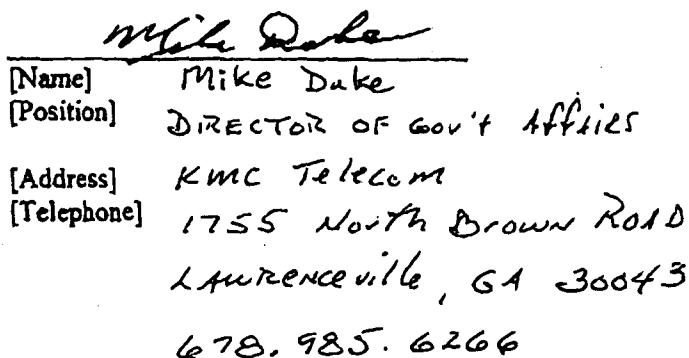 Mike Duke
[Name] Mike Duke
[Position] DIRECTOR OF Gov't Affairs
[Address] KMC Telecom
[Telephone] 1755 North Brown ROAD
LAWRENCEville, GA 30043
678.985.6266